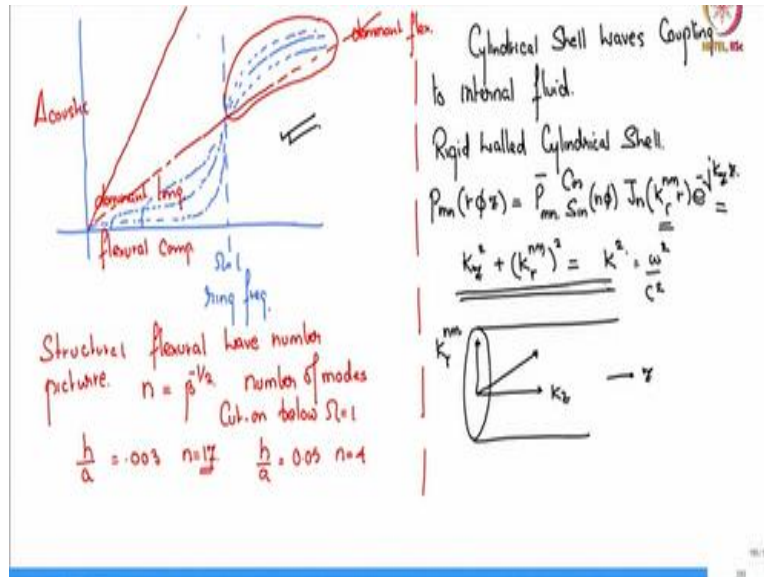 dominant flex.
Acoustic
dominant long.
flexural comp
Ω=1
ring freq.
Structural flexural wave number
picture. n = β^-1/2 number of modes
Cut-on below Ω=1
h/a = .003 n=17 h/a = 0.05 n=4
Cylindrical Shell Waves Coupling
to internal fluid.
Rigid walled Cylindrical Shell.
Pmn(rφz) = P̄mn Cos Sin (nφ) Jn(kr^nm r) e^-jkz z
kz² + (kr^nm)² = k² = ω²/c²
kr^nm
kz
z